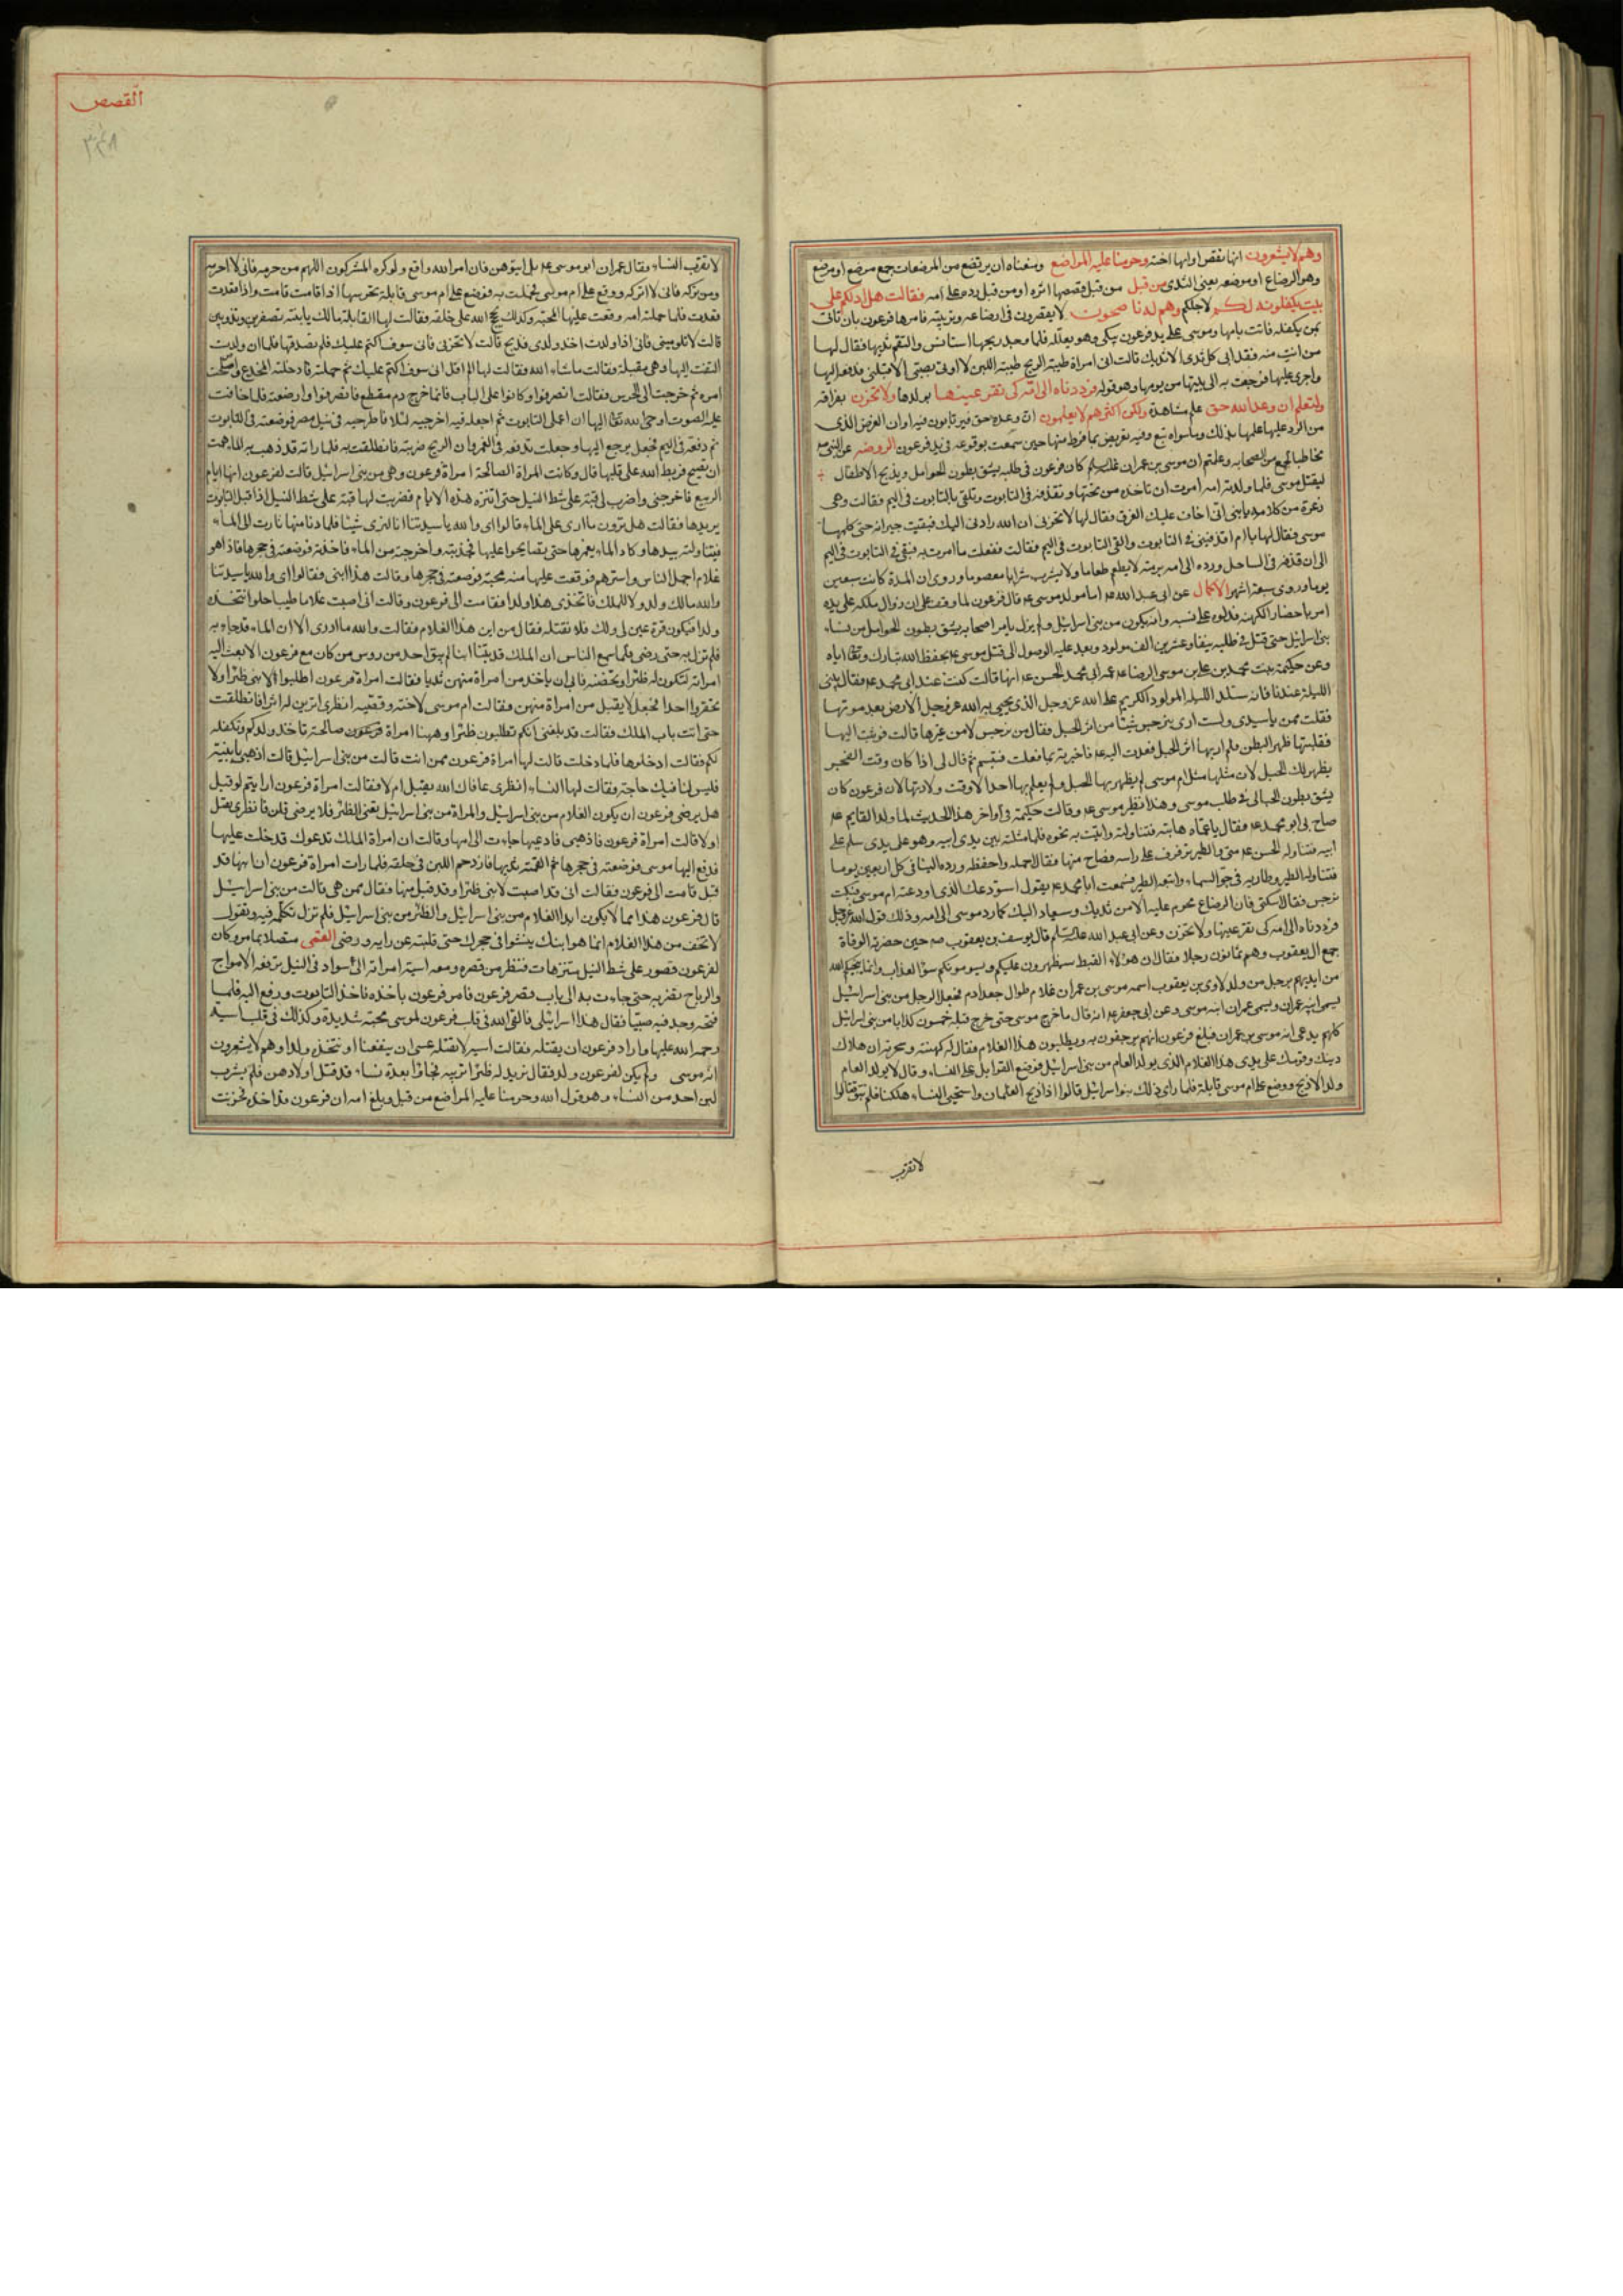 وهم لا يشعرون انها تقص او انها اخته وحرمنا عليه المراضع ومنعناه ان يرتضع من المرضعات جمع مرضع او مرضع
وهو الرضاع او موضعه يعنى الثدى من قبل من قبل قصصها اثره او من قبل رده على امه فقالت هل ادلكم على
بيت يكفلونه لكم لاجلكم وهم له ناصحون لا يقصرون فى ارضاعه وتربيته فامرها فرعون بان تاتى
بمن يكفله فاتت بامها وموسى على يد فرعون يبكى وهو يعلله فلما وجد ريحها استانس والتقم ثديها فقال لها
من انت منه فقد ابى كل ثدى الا ثديك قالت انى امراة طيبة الريح طيبة اللبن لا اوتى بصبى الا قبلنى فدفعه اليها
واجرى عليها فرجعت به الى بيتها من يومها وهو قوله فرددناه الى امه كى تقر عينها بولدها ولا تحزن بفراقه
ولتعلم ان وعد الله حق علم مشاهدة ولكن اكثرهم لا يعلمون ان وعده حق فيرتابون فيه او ان الغرض الذى
من الرد عليها علمها بذلك وما سواه تبع وفيه تعريض بما فرط منها حين سمعت بوقوعه فى يد فرعون الروضه عن النبى ص
مخاطبا لجمع من الصحابه وعلمتم ان موسى بن عمران كان فرعون فى طلبه يشق بطون الحوامل ويذبح الاطفال
ليقتل موسى فلما ولدته امه امرت ان تاخذه من تحتها وتقذفه فى التابوت وتلقى بالتابوت فى اليم فقالت وهى
ذعرة من كلامه يا بنى انى اخاف عليك الغرق فقال لها لا تحزنى ان الله رادنى اليك فبقيت حيرانه حتى كلمها
موسى فقال لها يا ام اقذفينى فى التابوت والقى التابوت فى اليم فقالت ففعلت ما امرت به فبقى فى التابوت فى اليم
الى ان قذفه فى الساحل ورده الى امه برمته لا يطعم طعاما ولا يشرب شرابا معصوما وروى ان المدة كانت سبعين
يوما وروى سبعة اشهر الاكمال عن ابى عبد الله ع اما مولد موسى ع فان فرعون لما وقف على ان زوال ملكه على يده
امر باحضار الكهنه فدلوه على نسبه وانه يكون من بنى اسرائيل ولم يزل يامر اصحابه بشق بطون الحوامل من نساء
بنى اسرائيل حتى قتل فى طلبه نيفا وعشرين الف مولود وبعد عليه الوصول الى قتل موسى ع بحفظ الله تبارك وتعالى اياه
وعن حكيمة بنت محمد بن على بن موسى الرضا ع عمة ابى محمد الحسن ع انها قالت كنت عند ابى محمد ع فقال بيتى
الليلة عندنا فانه ستلد الليلة المولود الكريم على الله عز وجل الذى يحيى به الله عز وجل الارض بعد موتها
فقلت ممن يا سيدى ولست ارى بنرجس شيئا من اثر الحبل فقال من نرجس لا من غيرها قالت فوثبت اليها
فقلبتها ظهر البطن فلم ار بها اثر الحبل فعدت اليه ع فاخبرته بما فعلت فتبسم ثم قال لى اذا كان وقت الفجر
يظهر لك الحبل لان مثلها مثل ام موسى لم يظهر بها الحبل ولم يعلم بها احد الا وقت ولادتها لان فرعون كان
يشق بطون الحبالى فى طلب موسى وهذا نظير موسى ع وقالت حكيمة فى آواخر هذا الحديث لما ولد القايم ع
صاح بى ابو محمد ع فقال يا عمتاه هاتيه فتناولته واتيت به نحوه فلما مثلته بين يدى ابيه وهو على يدى سلم على
ابيه فتناوله الحسن ع منى والطير ترفرف على راسه فصاح منها فقال احمله واحفظه ورده الينا فى كل اربعين يوما
فتناوله الطير وطار به فى جو السماء واتبعه الطير فسمعت ابا محمد ع يقول استودعك الذى اودعته ام موسى فبكت
نرجس فقال اسكتى فان الرضاع محرم عليه الا من ثديك وسيعاد اليك كما رد موسى الى امه وذلك قول الله عز وجل
فرددناه الى امه كى تقر عينها ولا تحزن وعن ابى عبد الله عليه السلم قال يوسف بن يعقوب ص حين حضرته الوفاة
جمع آل يعقوب وهم ثمانون رجلا فقال ان هؤلاء القبط سيظهرون عليكم ويسومونكم سؤ العذاب وانما ينجيكم الله
من ايديهم برجل من ولد لاوى بن يعقوب اسمه موسى بن عمران غلام طوال جعد ادم فجعل الرجل من بنى اسرائيل
يسمى ابنه عمران ويسمى عمران ابنه موسى وعن ابى جعفر ع انه قال ما خرج موسى حتى خرج قبله خمسون كذابا من بنى اسرائيل
كلهم يدعى انه موسى بن عمران فبلغ فرعون انهم يرجفون به ويطلبون هذا الغلام فقال له كهنته وسحرته ان هلاك
دينك وقومك على يدى هذا الغلام الذى يولد العام من بنى اسرائيل فوضع القوابل على النساء وقال لا يولد العام
ولد الا ذبح ووضع على ام موسى قابلة فلما راى ذلك بنو اسرائيل قالوا اذا ذبح الغلمان واستحيى النساء هلكنا فلم نبق فقالوا
لا نقرب
القصص
٣٤٨
لا نقرب النساء وقال عمران ابو موسى ع بلى ايتوهن فان امر الله واقع ولو كره المشركون اللهم من حرمه فانى لا احرمه
ومن تركه فانى لا اتركه ووقع على ام موسى فحملت به فوضع على ام موسى قابلة تحرسها اذا قامت قامت واذا قعدت
قعدت فلما حملته امه وقعت عليها المحبة وكذلك حجج الله على خلقه فقالت لها القابلة مالك يا بنية تصفرين وتذوبين
قالت لا تلومينى فانى اذا ولدت اخذ ولدى فذبح قالت لا تحزنى فانى سوف اكتم عليك فلم تصدقها فلما ان ولدت
التفتت اليها وهى مقبلة فقالت ما شاء الله فقالت لها الم اقل انى سوف اكتم عليك ثم حملته فادخلته المخدع واصلحت
امره ثم خرجت الى الحرس فقالت انصرفوا وكانوا على الباب فانما خرج دم مقطع فانصرفوا وارضعته فلما خافت
عليه الصوت اوحى الله تعالى اليها ان اعملى التابوت ثم اجعليه فيه اخرجيه ليلا فاطرحيه فى نيل مصر فوضعته فى التابوت
ثم دفعته فى اليم فجعل يرجع اليها وجعلت تدفعه فى الغمر وان الريح ضربته فانطلقت به فلما راته قد ذهب به الماء همت
ان تصيح فربط الله على قلبها قال وكانت المراة الصالحة امراة فرعون وهى من بنى اسرائيل قالت لفرعون انها ايام
الربيع فاخرجنى واضرب لى قبة على شط النيل حتى اتنزه هذه الايام فضربت لها قبة على شط النيل اذ اقبل التابوت
يريدها فقالت هل ترون ما ارى على الماء قالوا اى والله يا سيدتنا انا لنرى شيئا فلما دنا منها ثارت الى الماء
فتناولته بيدها وكاد الماء يغمرها حتى تصايحوا عليها فجذبته واخرجته من الماء فاخذته فوضعته فى حجرها فاذا هو
غلام اجمل الناس واسترهم فوقعت عليها منه محبة فوضعته فى حجرها وقالت هذا ابنى فقالوا اى والله يا سيدتنا
والله مالك ولد ولا للملك فاتخذى هذا ولدا فقامت الى فرعون وقالت انى اصبت غلاما طيبا حلوا نتخذه
ولدا فيكون قرة عين لى ولك فلا تقتله فقال من اين هذا الغلام فقالت والله ما ادرى الا ان الماء قد جاء به
فلم تزل به حتى رضى فلما سمع الناس ان الملك قد تبنا ابنا لم يبق احد من روس من كان مع فرعون الا بعث اليه
امراته لتكون له ظئرا وتحضنه فابى ان ياخذ من امراة منهن ثديا فقالت امراة فرعون اطلبوا لابنى ظئرا ولا
تحقروا احدا فجعل لا يقبل من امراة منهن فقالت ام موسى لاخته وقصيه انظرى اترين له اثرا فانطلقت
حتى اتت باب الملك فقالت قد بلغنى انكم تطلبون ظئرا وهيهنا امراة صالحة تاخذ ولدكم وتكفله
لكم فقالت ادخلوها فلما دخلت قالت لها امراة فرعون ممن انت قالت من بنى اسرائيل قالت اذهبى يا بنية
فليس لنا فيك حاجة فقالت لها النساء انظرى عافاك الله يقبل ام لا فقالت امراة فرعون ارايتم لو قبل
هل يرضى فرعون ان يكون الغلام من بنى اسرائيل والمراة من بنى اسرائيل تعنى الظئر فلا يرضى قلن فانظرى يقبل
او لا قالت امراة فرعون فاذهبى فادعيها جاءت الى امها وقالت ان امراة الملك تدعوك فدخلت عليها
فدفع اليها موسى فوضعته فى حجرها ثم القمته ثديها فازدحم اللبن فى حلقه فلما رات امراة فرعون ان ابنها قد
قبل قامت الى فرعون فقالت انى قد اصبت لابنى ظئرا وقد قبل منها فقال ممن هى قالت من بنى اسرائيل
قال فرعون هذا مما لا يكون ابدا الغلام من بنى اسرائيل والظئر من بنى اسرائيل فلم تزل تكلمه فيه وتقول
لا تخف من هذا الغلام انما هو ابنك ينشوا فى حجرك حتى قلبته عن رايه ورضى القمى متصلا بما مر وكان
لفرعون قصور على شط النيل متنزهات فنظر من قصره ومعه اسية امراته الى سواد فى النيل ترفعه الامواج
والرياح تضربه حتى جاءت به الى باب قصر فرعون فامر فرعون باخذه فاخذ التابوت ورفع اليه فلما
فتحه وجد فيه صبيا فقال هذا اسرائيلى فالقى الله فى قلب فرعون لموسى محبة شديدة وكذلك فى قلب اسية
رحمة الله عليها واراد فرعون ان يقتله فقالت اسية لا تقتله عسى ان ينفعنا او نتخذه ولدا وهم لا يشعرون
انه موسى ولم يكن لفرعون ولد فقال نريد له ظئرا تربيه فجاؤا بعدة نساء قد قتل اولادهن فلم يشرب
لبن احد من النساء وهو قول الله وحرمنا عليه المراضع من قبل وبلغ امه ان فرعون قد اخذه فحزنت